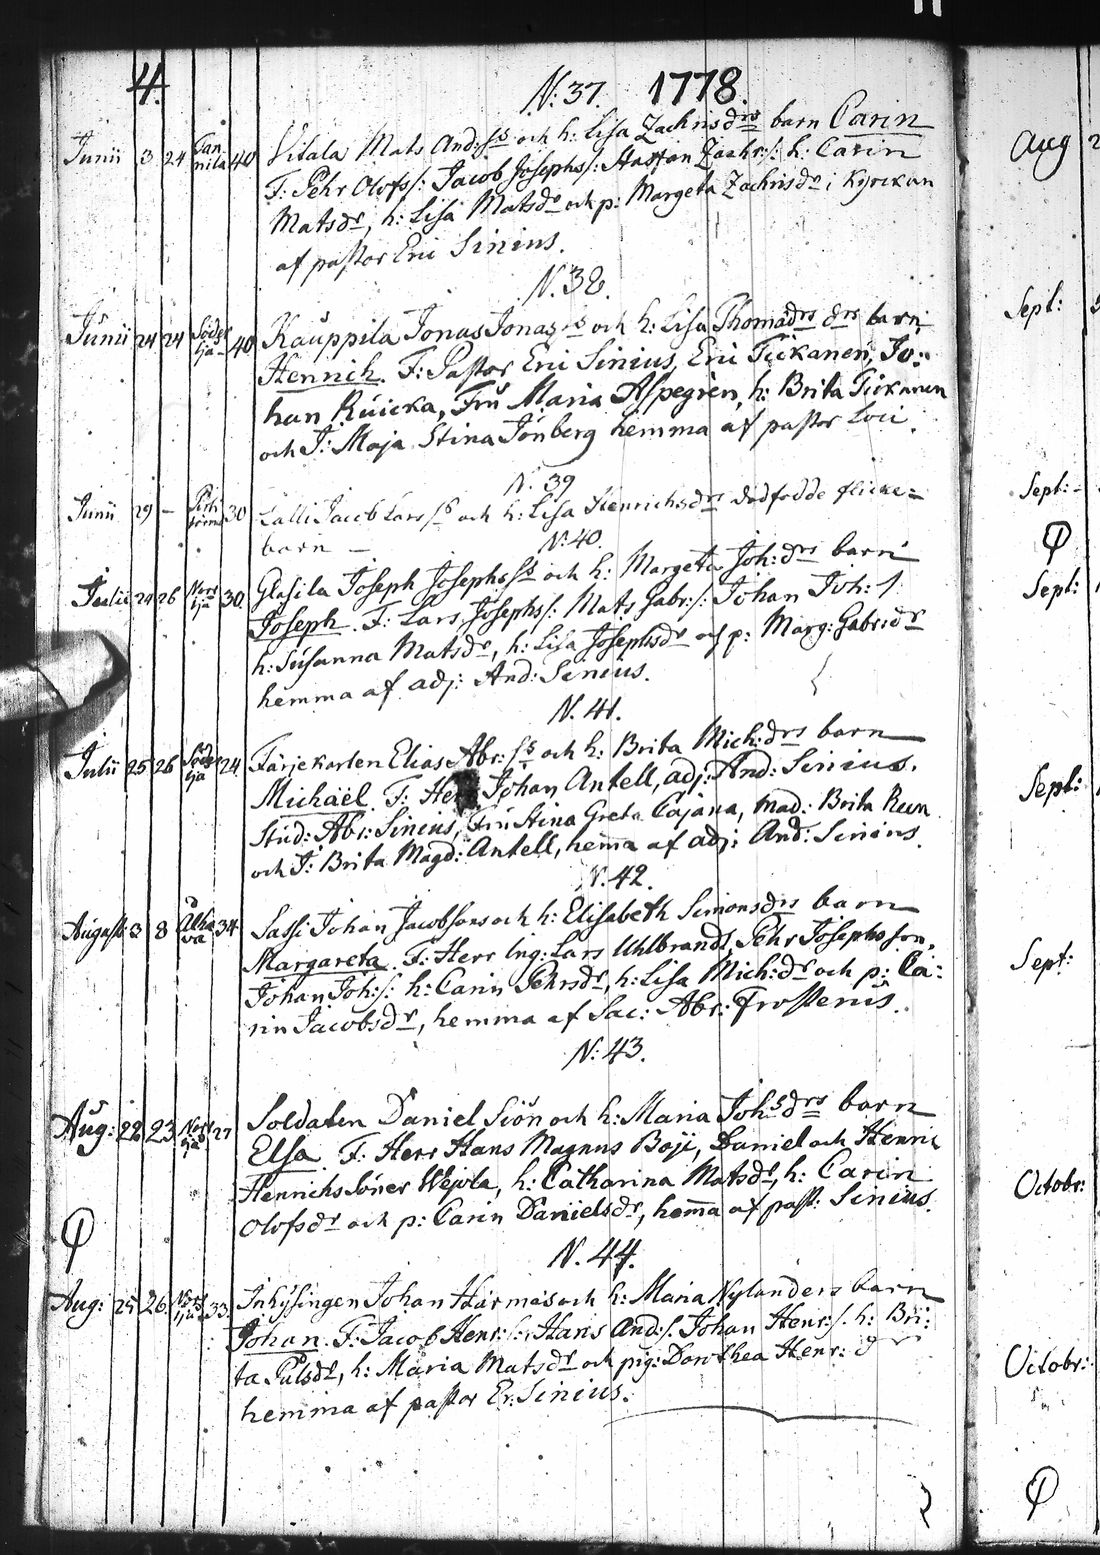 4.
N: 37. 1778.
Junii 3 24 40 Vitala Mats And:ss och h: Lisa Zachrisdrs barn Carin
F: Pehr Olofs/: Jacob Josephs/: Staffan Zachr:/: h: Carin
Matsdr, h: Lisa Matsdr och p: Margeta Zachrisdr i Kyrckan
af pastor Eric Sinius.
N. 38.
Junii 24 24 Söder
tja 40 Kauppila Jonas Jonass och h: Lisa Thomædrs drs barn
Hennich. F: Pastor Eric Sinius, Eric Tickanen, Jo:
han Ruicka, Fru Maria Aspegren, h: Brita Tickanen
och J: Maja Stina Jönberg hemma af pastor Loci.
N. 39
Junii 29 – 30 Lalli Jacob Larsss och h: Lisa Henrichsdrs dödfödde flicke=
barn –
N: 40.
Julii 24 26 Nors
tja 30 Glasila Joseph Josephsss och h: Margeta Joh:drs barn
Joseph. F: Lars Josephs/: Mats Gabr:/: Johan Joh: /
h: Susanna Matsdr, h: Lisa Josephsdr och p: Marg: Gabr:dr
hemma af adj: And: Sinius.
N. 41.
Julii 25 26 Söder
tja 24 Färjekarlen Elias Abr:ss och h: Brita Mich:drs barn
Michaël. F: Herr Johan Antell, adj: And: Sinius.
Stud: Abr: Sinius, Fru Stina Greta Cajana, mad: Brita Reen
och J: Brita Magd: Antell, hema af adj: And: Sinius.
N. 42.
August: 3 8 34 Sassi Johan Jacobsons och h: Elisabeth Simonsdrs barn
Margareta F: Herr Ing: Lars Uhlbrandt, Pehr Josephsson,
Johan Joh:/: h: Carin Pehrsdr, h: Lisa Mich:dr och p: Ca:
rin Jacobsdr, hemma af Sac: Abr: Frostenis.
N: 43.
Aug: 22 23 Nors
tja 27 Soldaten Daniel Siön och h: Maria Johsdrs barn
Elsa. F: Herr Hans Magnus Boje, Daniel och Henric
Henrichs Söner Wejola, h: Catharina Matsdr, h: Carin
Olofsdr och p: Carin Danielsdr, hema af past: Sinius.
N. 44.
Aug: 25 26. Nors
tja 33. Inhysingen Johan Harmas och h: Maria Nylanders barn
Johan. F: Jacob Henr:/: Hans And:/. Johan Henr:/. h: Bri:
ta Pålsdr, h: Maria Matsdr och pig: Dorothea Henr: dr
hemma af pastor Er: Sinius.
Aug 2
Sept:
Sept:
Sept:
Sept:
Sept:
Octobr:
Octobr: